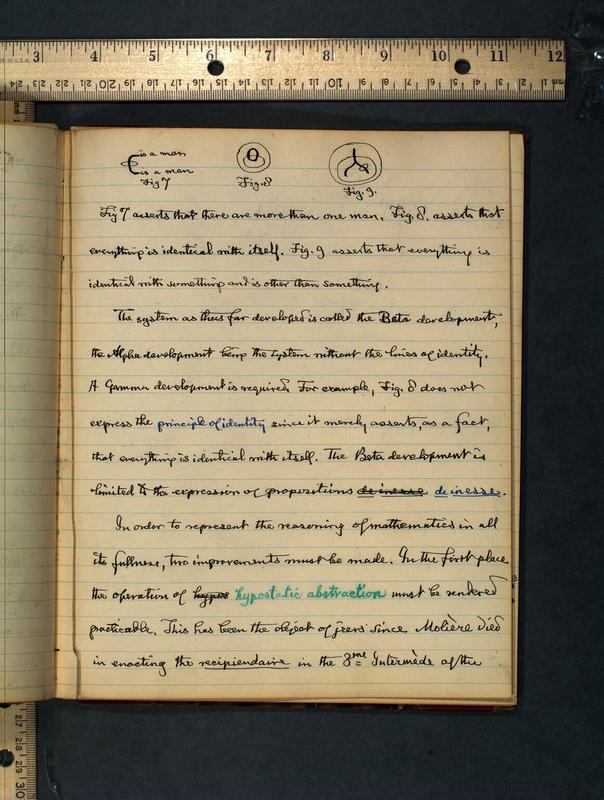 is a man
is a man
Fig 7
Fig. 8
Fig. 9.
Fig 7 asserts that there are more than one man. Fig. 8. asserts that
everything is identical with itself. Fig. 9 asserts that everything is
identical with something and is other than something.
The system as thus far developed is called the Beta development,
the Alpha development being the system without the lines of identity.
A Gamma development is required. For example, Fig. 8 does not
express the principle of identity since it merely asserts, as a fact,
that everything is identical with itself. The Beta development is
limited to the expression of propositions de inesse de inesse.
In order to represent the reasoning of mathematics in all
its fullness, two improvements must be made. In the first place
the operation of hypos hypostatic abstraction must be rendered
practicable. This has been the object of jeers since Molière died
in enacting the recipiendaire in the 3me Intermède of the
3 4 5 6 7 8 9 10 11 12